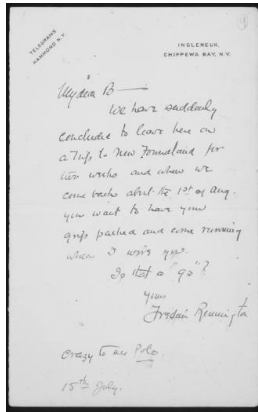 TELEGRAMS
HAMMOND N.Y.
INGLENEUK,
CHIPPEWA BAY, N.Y.
My dear B—
We have suddenly
concluded to leave here on
a Trip to New Foundland for
two weeks and when we
come back about the 1st of Aug.
you want to have your
grip packed and come running
when I wire you.
Is that a "go"?
Yours
Frederic Remington
Crazy to see Polo.
15th July.